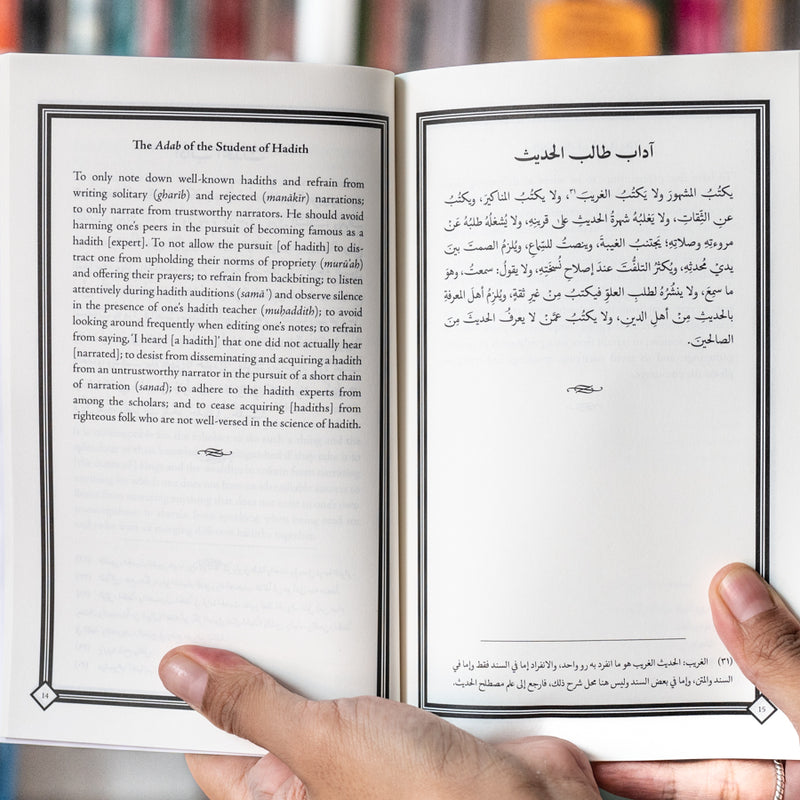 The Adab of the Student of Hadith
To only note down well-known hadiths and refrain from
writing solitary (gharīb) and rejected (manākīr) narrations;
to only narrate from trustworthy narrators. He should avoid
harming one's peers in the pursuit of becoming famous as a
hadith [expert]. To not allow the pursuit [of hadith] to dis-
tract one from upholding their norms of propriety (murū'ah)
and offering their prayers; to refrain from backbiting; to listen
attentively during hadith auditions (samāʿ) and observe silence
in the presence of one's hadith teacher (muḥaddith); to avoid
looking around frequently when editing one's notes; to refrain
from saying, 'I heard [a hadith]' that one did not actually hear
[narrated]; to desist from disseminating and acquiring a hadith
from an untrustworthy narrator in the pursuit of a short chain
of narration (sanad); to adhere to the hadith experts from
among the scholars; and to cease acquiring [hadiths] from
righteous folk who are not well-versed in the science of hadith.
14
آداب طالب الحديث
يكتُبُ المشهورَ ولا يَكتُبُ الغريبَ٣١، ولا يكتُبُ المناكيرَ، ويكتُبُ
عنِ الثِّقاتِ، ولا يَغلبُهُ شهرةُ الحديثِ على قرينِهِ، ولا يُشغلُهُ طلبُهُ عَنْ
مروءتِهِ وصلاتِهِ؛ يجتنبُ الغيبةَ، وينصتُ للسَّماعِ، ويُلزمُ الصمتَ بينَ
يديْ مُحدثِهِ، ويُكثرُ التلفُّتَ عندَ إصلاحِ نُسخَتِهِ، ولا يقولُ: سمعتُ، وهوَ
ما سمِعَ، ولا ينشُرُهُ لطلبِ العلوِّ فيكتبُ مِنْ غيرِ ثقةٍ، ويلزمُ أهلَ المعرفةِ
بالحديثِ مِنْ أهلِ الدينِ، ولا يكتُبُ عمَّنْ لا يعرفُ الحديثَ مِنَ
الصالحينَ.
(٣١) الغريب: الحديث الغريب هو ما انفرد به رو واحد، والانفراد إما في السند فقط وإما في
السند والمتن، وإما في بعض السند وليس هنا محل شرح ذلك، فارجع إلى علم مصطلح الحديث.
15